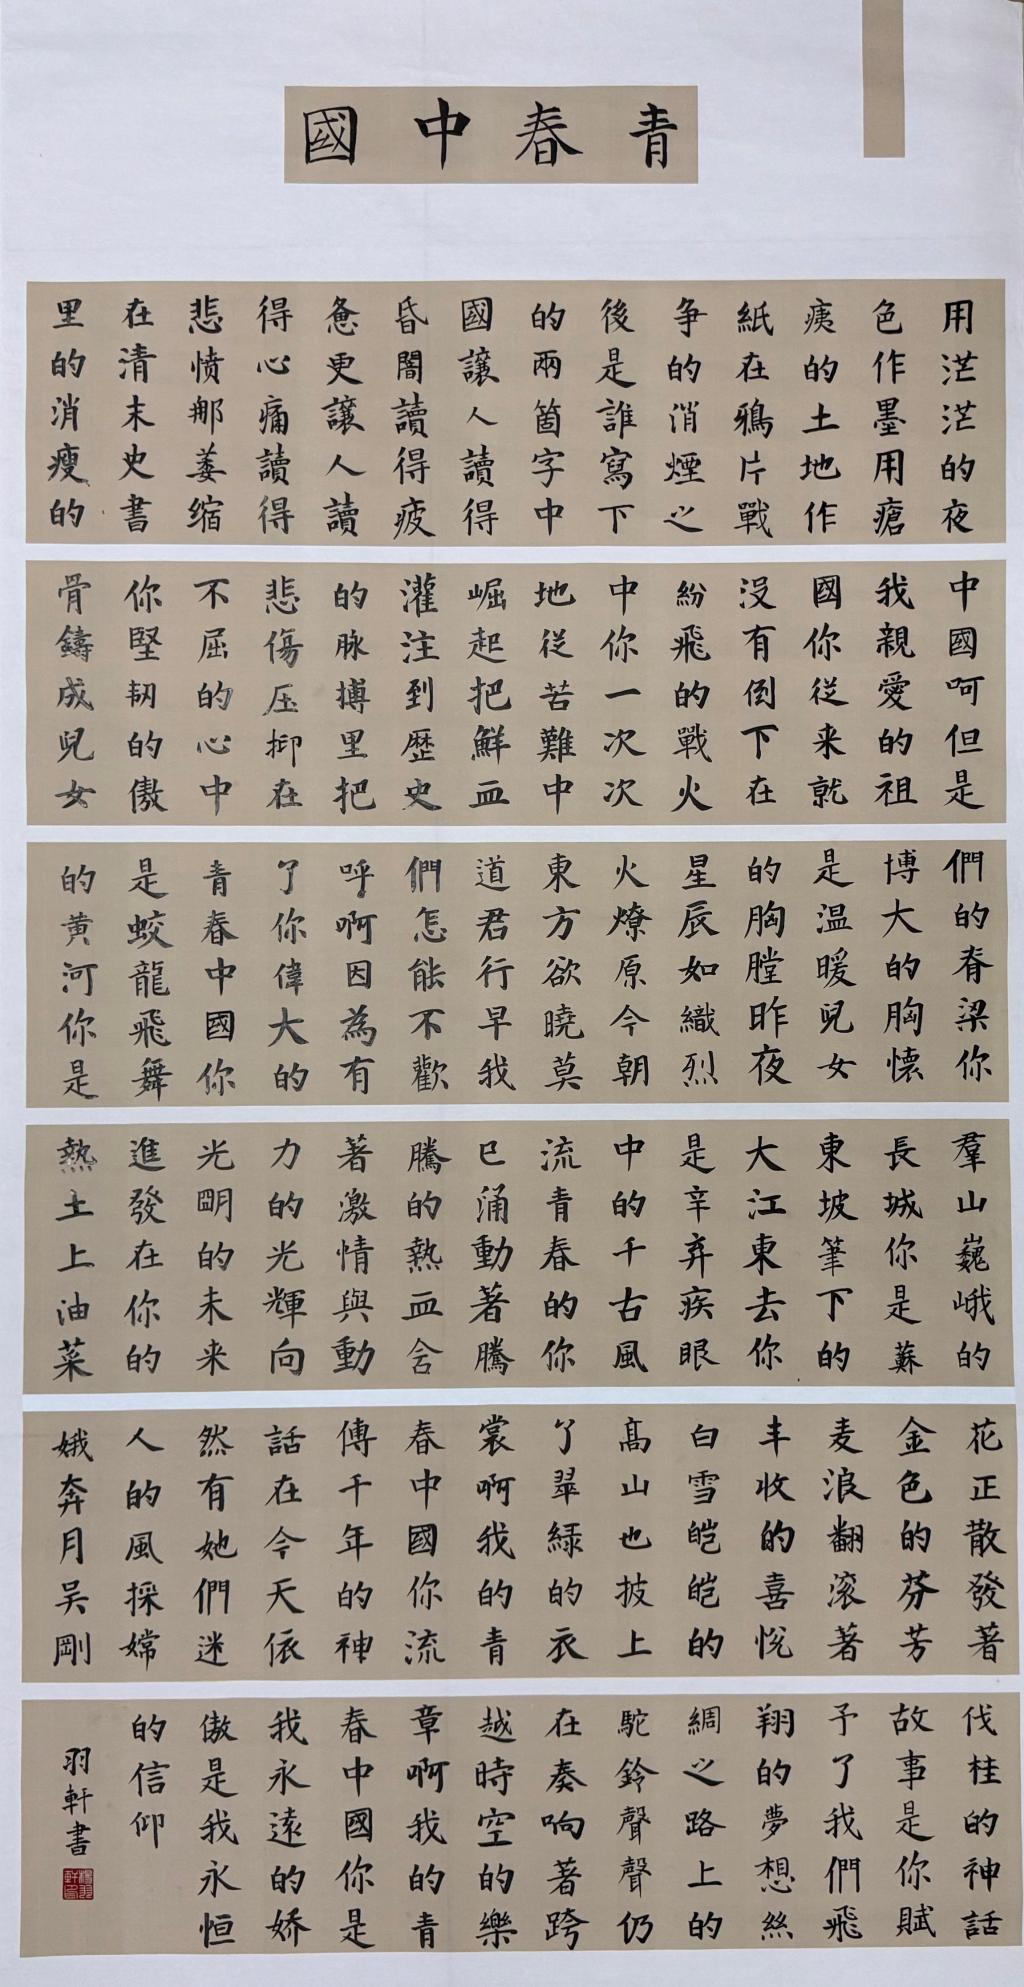 青春中國
用茫茫的夜
色作墨用瘡
痍的土地作
紙在鴉片戰
争的消煙之
後是誰寫下
的兩箇字中
國讓人讀得
昏闇讀得疲
惫更讓人讀
得心痛讀得
悲愤那萎缩
在清末史書
里的消瘦的
中國呵但是
我親愛的祖
國你從来就
没有倒下在
紛飛的戰火
中你一次次
地從苦難中
崛起把鮮血
灌注到歷史
的脉搏里把
悲傷压抑在
不屈的心中
你堅韧的傲
骨鑄成兒女
們的脊梁你
博大的胸懷
是温暖兒女
的胸膛昨夜
星辰如織烈
火燎原今朝
東方欲曉莫
道君行早我
們怎能不歡
呼啊因為有
了你偉大的
青春中國你
是蛟龍飛舞
的黄河你是
羣山巍峨的
長城你是蘇
東坡筆下的
大江東去你
是辛弃疾眼
中的千古風
流青春的你
已涌動著騰
騰的熱血含
著激情與動
力的光輝向
光明的未来
進發在你的
熱土上油菜
花正散發著
金色的芬芳
麦浪翻滚著
丰收的喜悦
白雪皑皑的
髙山也披上
了翠緑的衣
裳啊我的青
春中國你流
傳千年的神
話在今天依
然有她們迷
人的風採嫦
娥奔月吴剛
伐桂的神話
故事是你賦
予了我們飛
翔的夢想絲
綢之路上的
駝鈴聲聲仍
在奏响著跨
越時空的樂
章啊我的青
春中國你是
我永遠的娇
傲是我永恒
的信仰
羽軒書